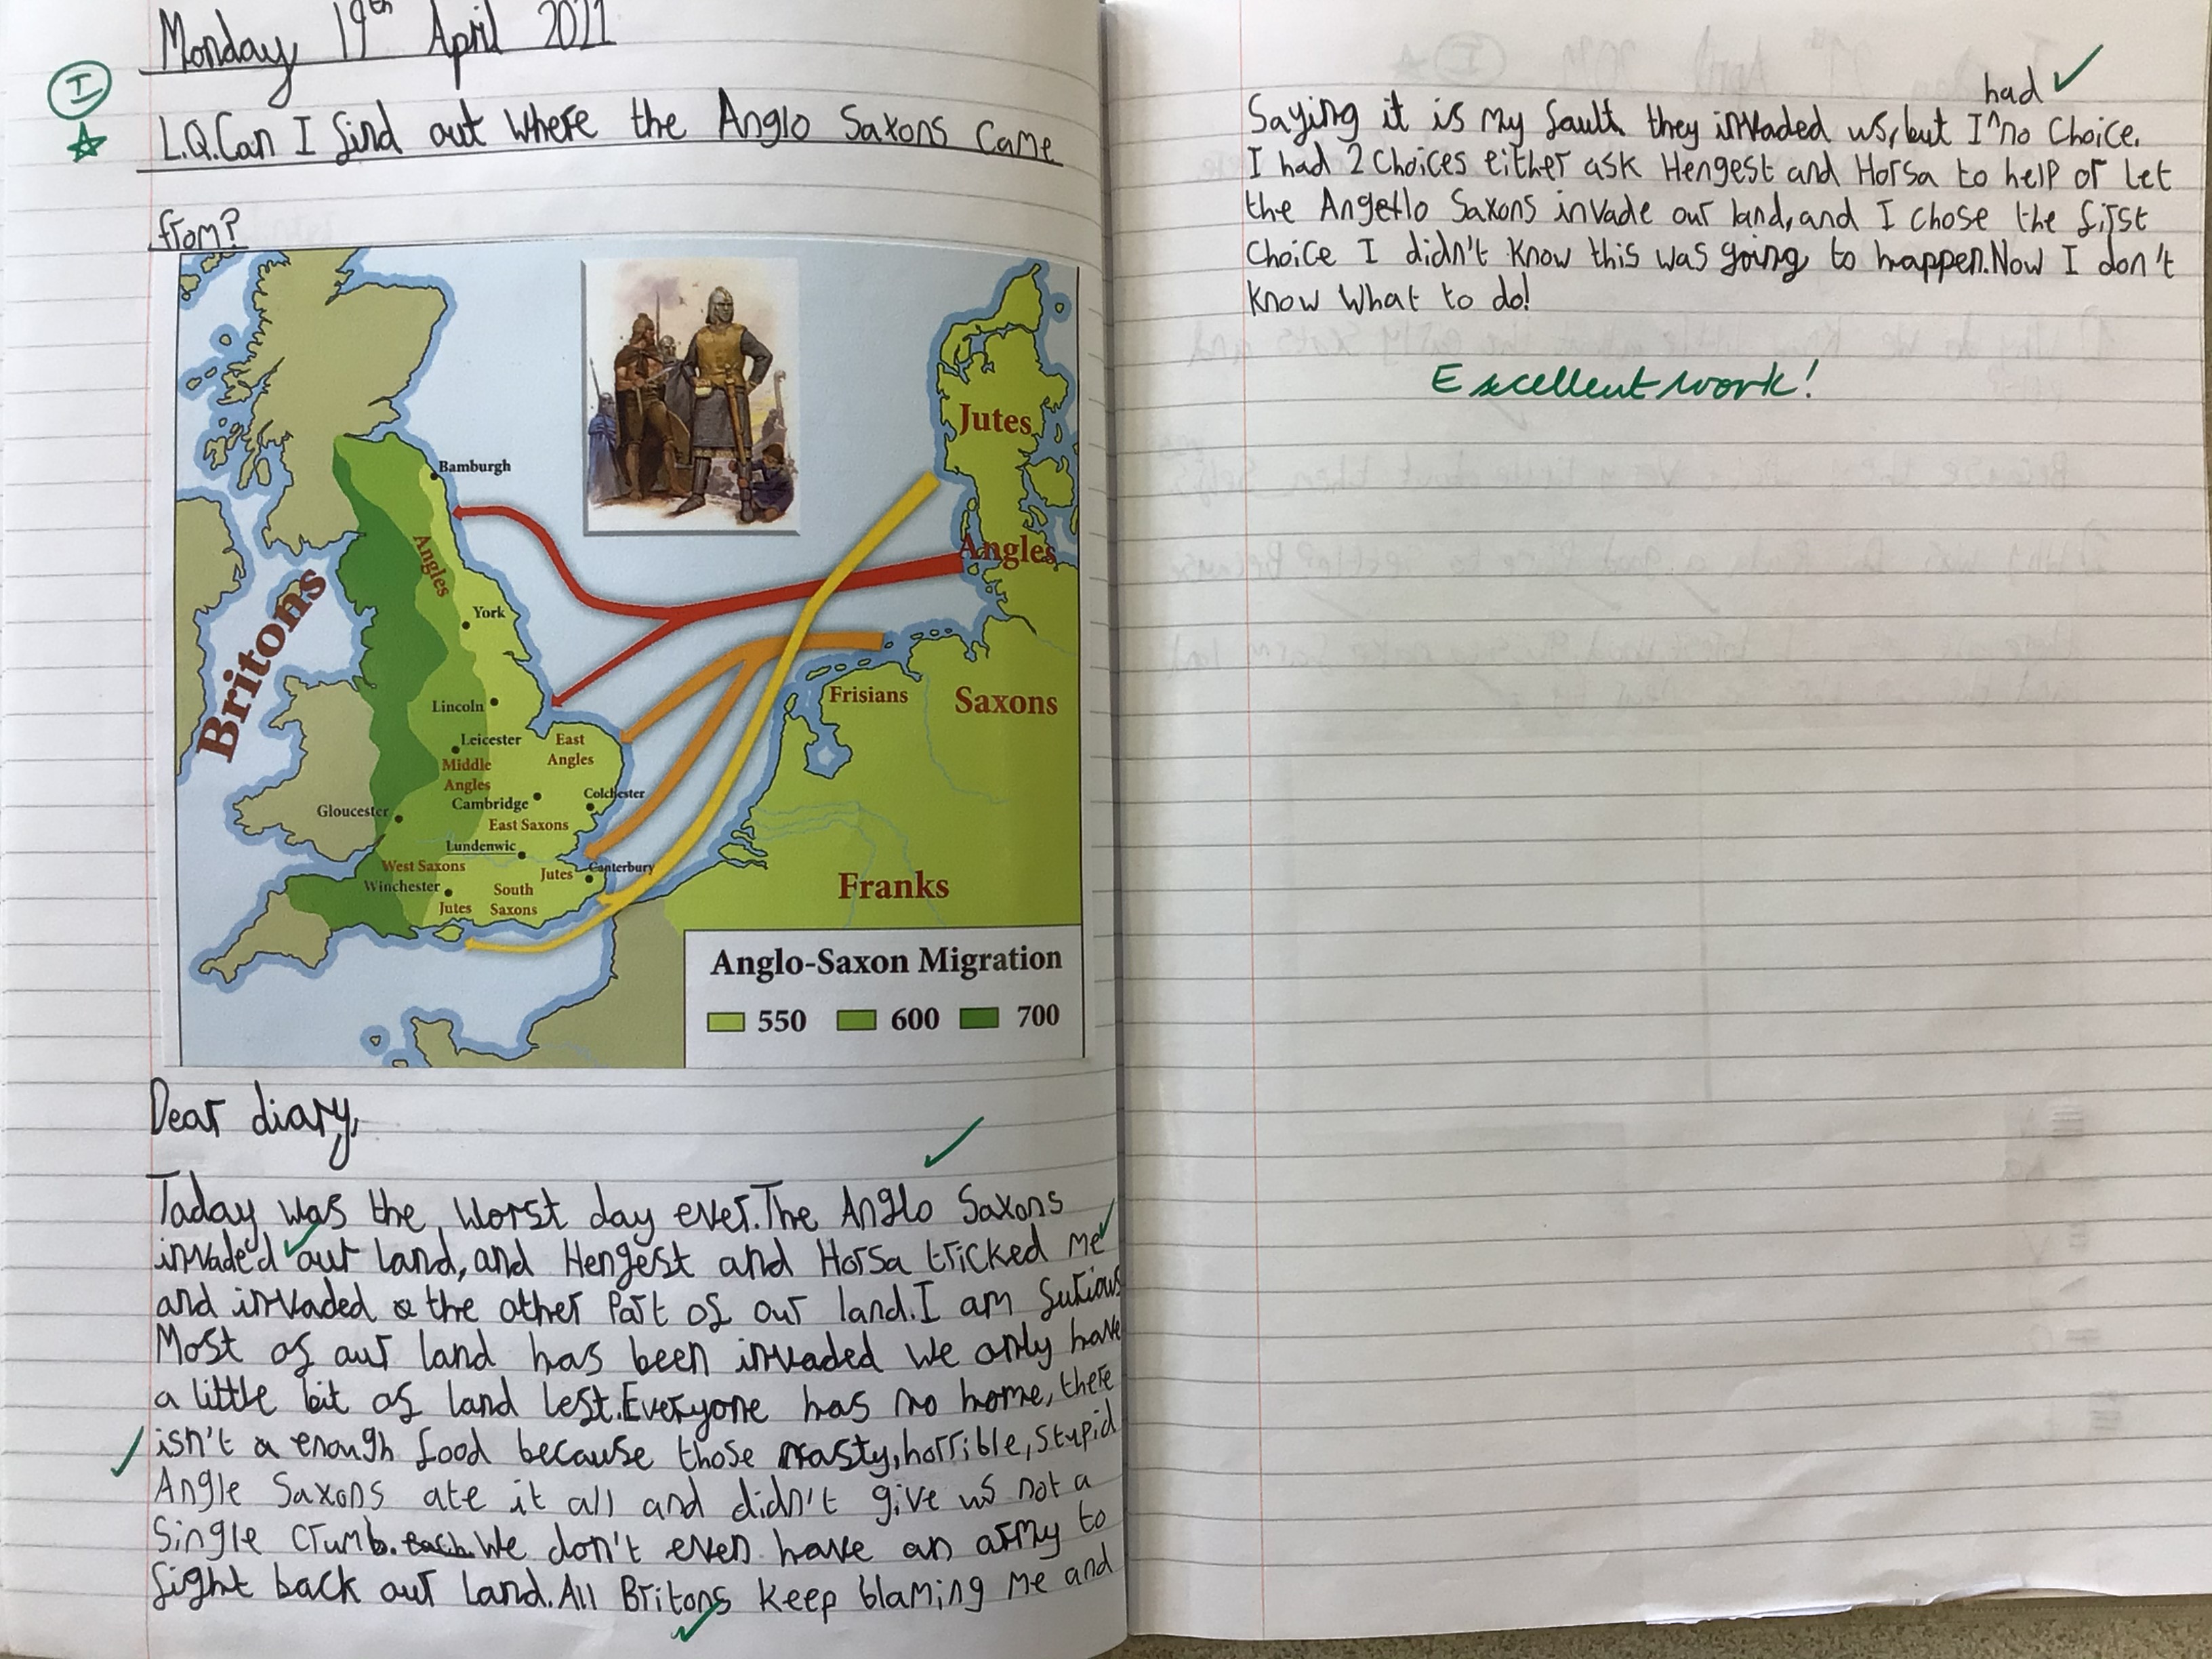 Monday 19th April 2021
I
L.Q.Can I find out where the Anglo Saxons came
from?
Bamburgh
Jutes
Angles
Angles
Britons
York
Frisians
Saxons
Lincoln
Leicester
East
Angles
Middle
Angles
Cambridge
Colchester
Gloucester
East Saxons
Lundenwic
West Saxons
Canterbury
Jutes
Winchester
South
Saxons
Jutes
Franks
Anglo-Saxon Migration
550 600 700
Dear diary,
Today was the worst day ever.The Anglo Saxons
invaded our land, and Hengest and Horsa tricked me
and invaded the other part of our land.I am furious
Most of our land has been invaded we only have
a little bit of land left.Everyone has no home, there
isn't a enough food because those nasty, horrible, stupid
Angle Saxons ate it all and didn't give us not a
single crumb. each We don't even have an army to
fight back our land.All Britons keep blaming me and
had
Saying it is my fault they invaded us, but I ^ no choice.
I had 2 choices either ask Hengest and Horsa to help or let
the Angello Saxons invade our land, and I chose the first
choice I didn't know this was going to happen.Now I don't
know what to do!
Excellent work!